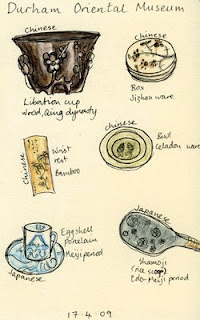 Durham Oriental Museum
Chinese
Libation cup
wood, Qing dynasty
Chinese
Box
Jizhou ware
Chinese
Wrist
rest
Bamboo
Chinese
Bowl
Celadon ware
Eggshell
porcelain
Meiji period
Japanese
Japanese
Shamoji
(rice scoop)
Edo-Meiji period
17.4.09